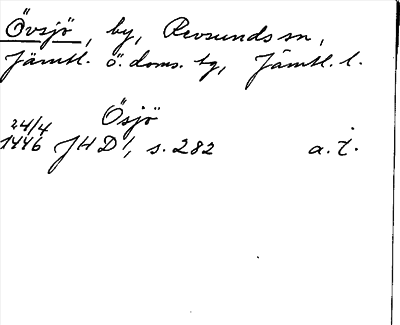 Övsjö, by, Revsunds sn,
Jämtl. ö. doms. tg, Jämtl. l.
Ösjö
24/4
1446 JHD1, s. 282 a. i.